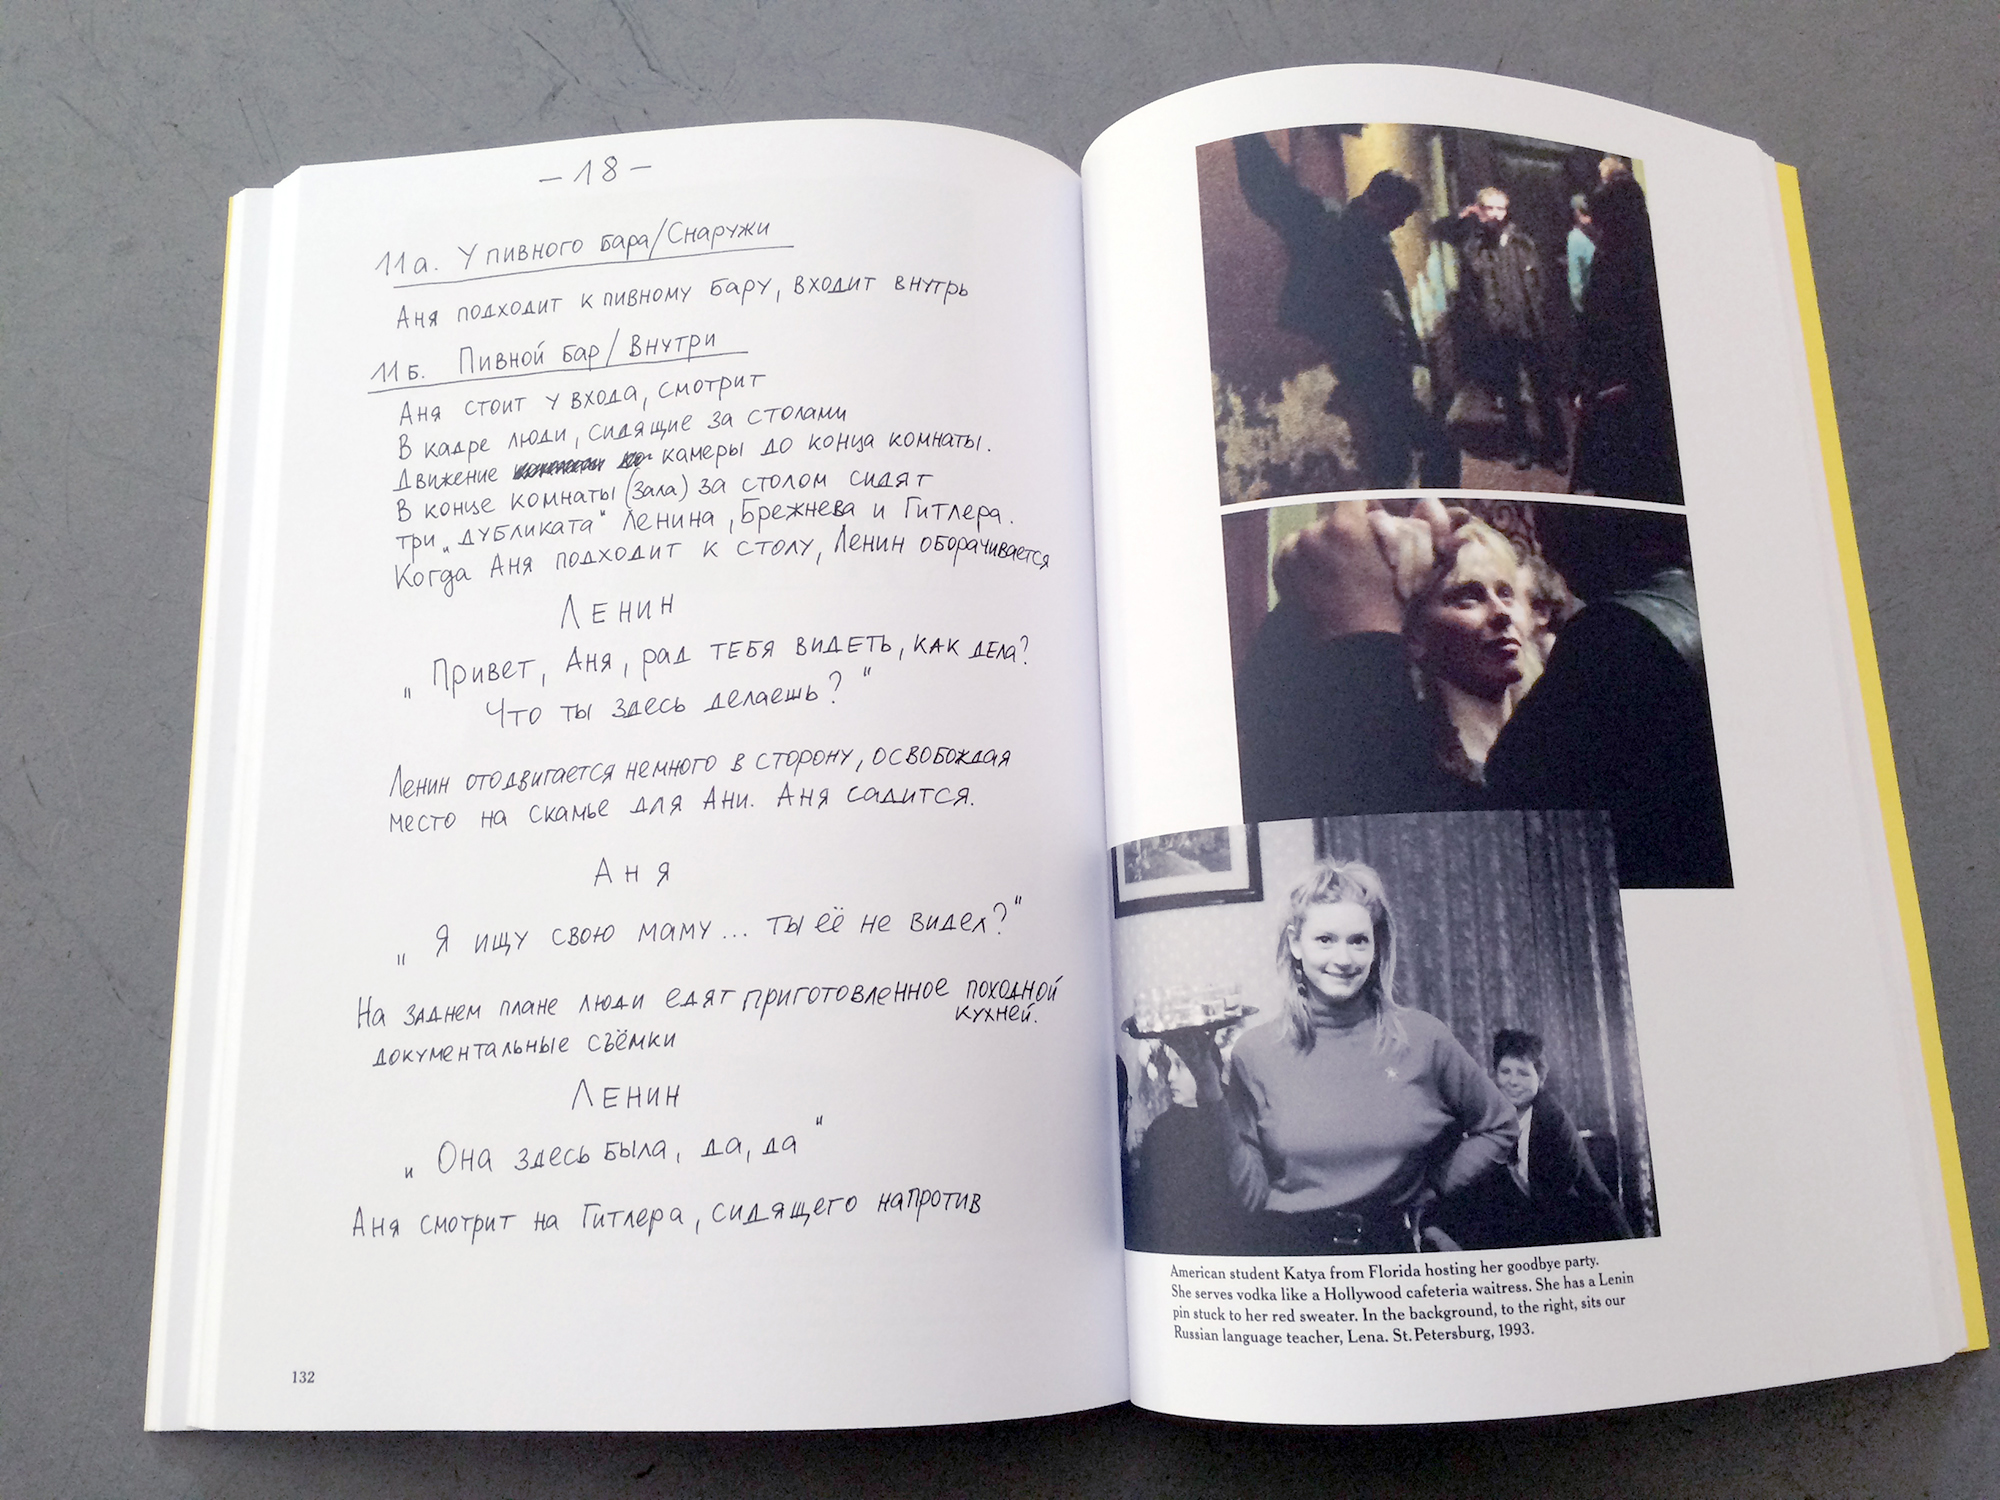 – 18 –
11а. У пивного бара/Снаружи
Аня подходит к пивному бару, входит внутрь
11б. Пивной бар/Внутри
Аня стоит у входа, смотрит
В кадре люди, сидящие за столами
Движение камеры до конца комнаты.
В конце комнаты (зала) за столом сидят
три „дубликата" Ленина, Брежнева и Гитлера.
Когда Аня подходит к столу, Ленин оборачивается
Ленин
„Привет, Аня, рад тебя видеть, как дела?
Что ты здесь делаешь?"
Ленин отодвигается немного в сторону, освобождая
место на скамье для Ани. Аня садится.
Аня
„Я ищу свою маму... ты её не видел?"
На заднем плане люди едят приготовленное походной
кухней.
документальные съёмки
Ленин
„Она здесь была, да, да"
Аня смотрит на Гитлера, сидящего напротив
132
American student Katya from Florida hosting her goodbye party.
She serves vodka like a Hollywood cafeteria waitress. She has a Lenin
pin stuck to her red sweater. In the background, to the right, sits our
Russian language teacher, Lena. St. Petersburg, 1993.